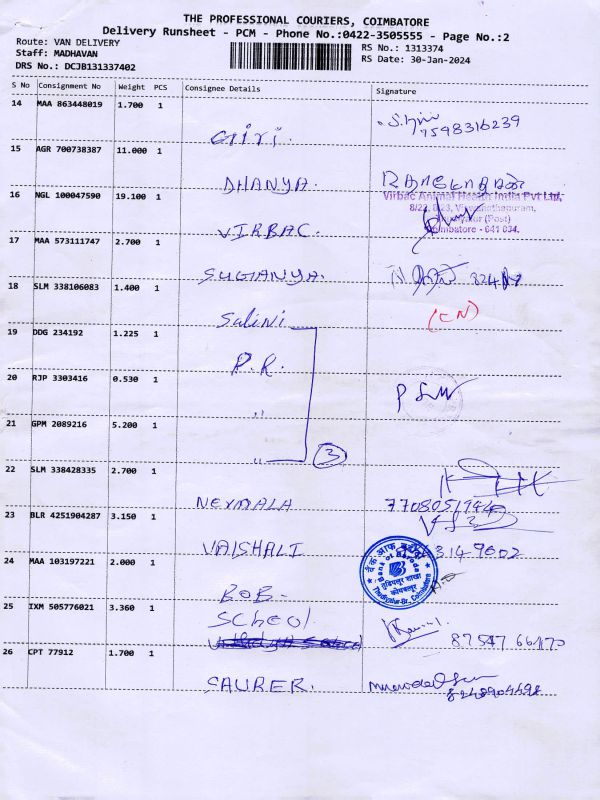 THE PROFESSIONAL COURIERS, COIMBATORE
Delivery Runsheet - PCM - Phone No.:0422-3505555 - Page No.:2
Route: VAN DELIVERY
RS No.: 1313374
Staff: MADHAVAN
RS Date: 30-Jan-2024
DRS No.: DCJB131337402
S No Consignment No Weight PCS Consignee Details Signature
14 MAA 863448019 1.700 1
Giri. 7598316239
15 AGR 700738387 11.000 1
DHANYA.
16 NGL 100047590 19.100 1
Virbac Animal Health India Pvt Ltd,
(Post)
VIRBAC. Coimbatore - 641 034.
17 MAA 573111747 2.700 1
SUGANYA.
18 SLM 338106083 1.400 1
Salini (CN)
19 DDG 234192 1.225 1
P.R.
20 RJP 3303416 0.530 1
"
21 GPM 2089216 5.200 1
" 3
22 SLM 338428335 2.700 1
NERMALA
23 BLR 4251904287 3.150 1
VAISHALI
24 MAA 103197221 2.000 1
बैंक ऑफ़ बड़ौदा
Bank of Baroda
शाखा
Coimbatore
B.O.B.
25 IXM 505776021 3.360 1
SCHOOL
87547 66170
26 CPT 77912 1.700 1
SAURER. 8248904698